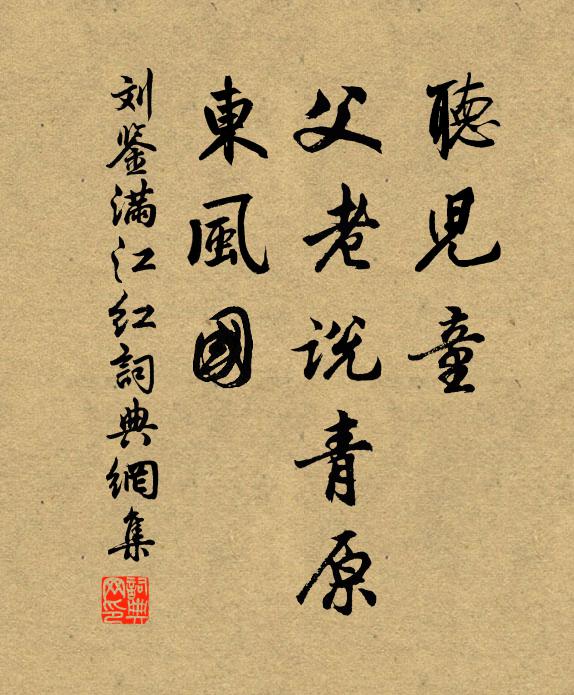 聽児童
父老说青原
東風國
刘鉴满江红詞典網集
詞典网印